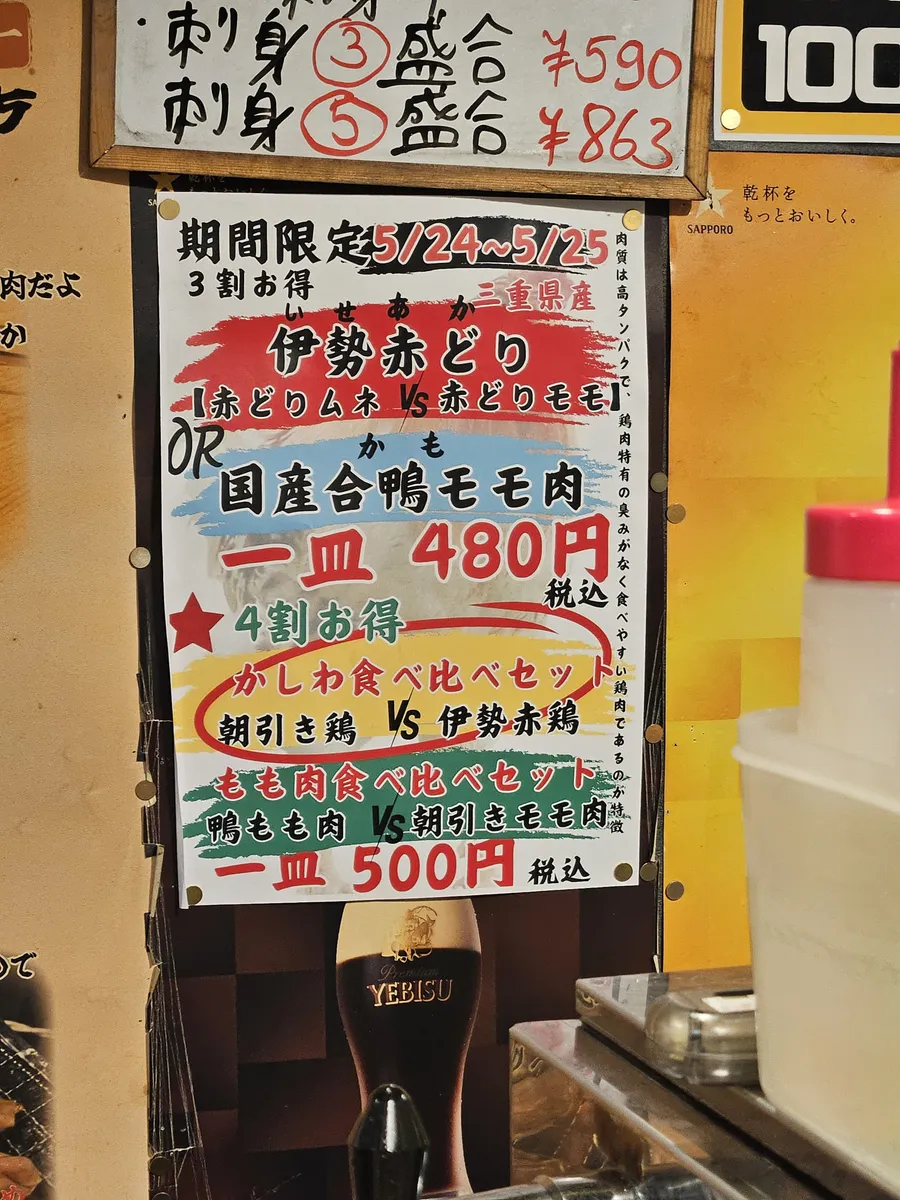 ・刺身③盛合 ¥590
刺身⑤盛合 ¥863
100
乾杯を
もっとおいしく。
SAPPORO
肉だよ
か
期間限定5/24~5/25
3割お得
三重県産
いせあか
伊勢赤どり
【赤どりムネ VS 赤どりモモ】
OR
かも
国産合鴨モモ肉
一皿 480円
税込
★4割お得
かしわ食べ比べセット
朝引き鶏 VS 伊勢赤鶏
もも肉食べ比べセット
鴨もも肉 VS 朝引きモモ肉
一皿 500円 税込
肉質は高タンパクで、鶏肉特有の臭みがなく食べやすい鶏肉であるのが特徴
Premium
YEBISU